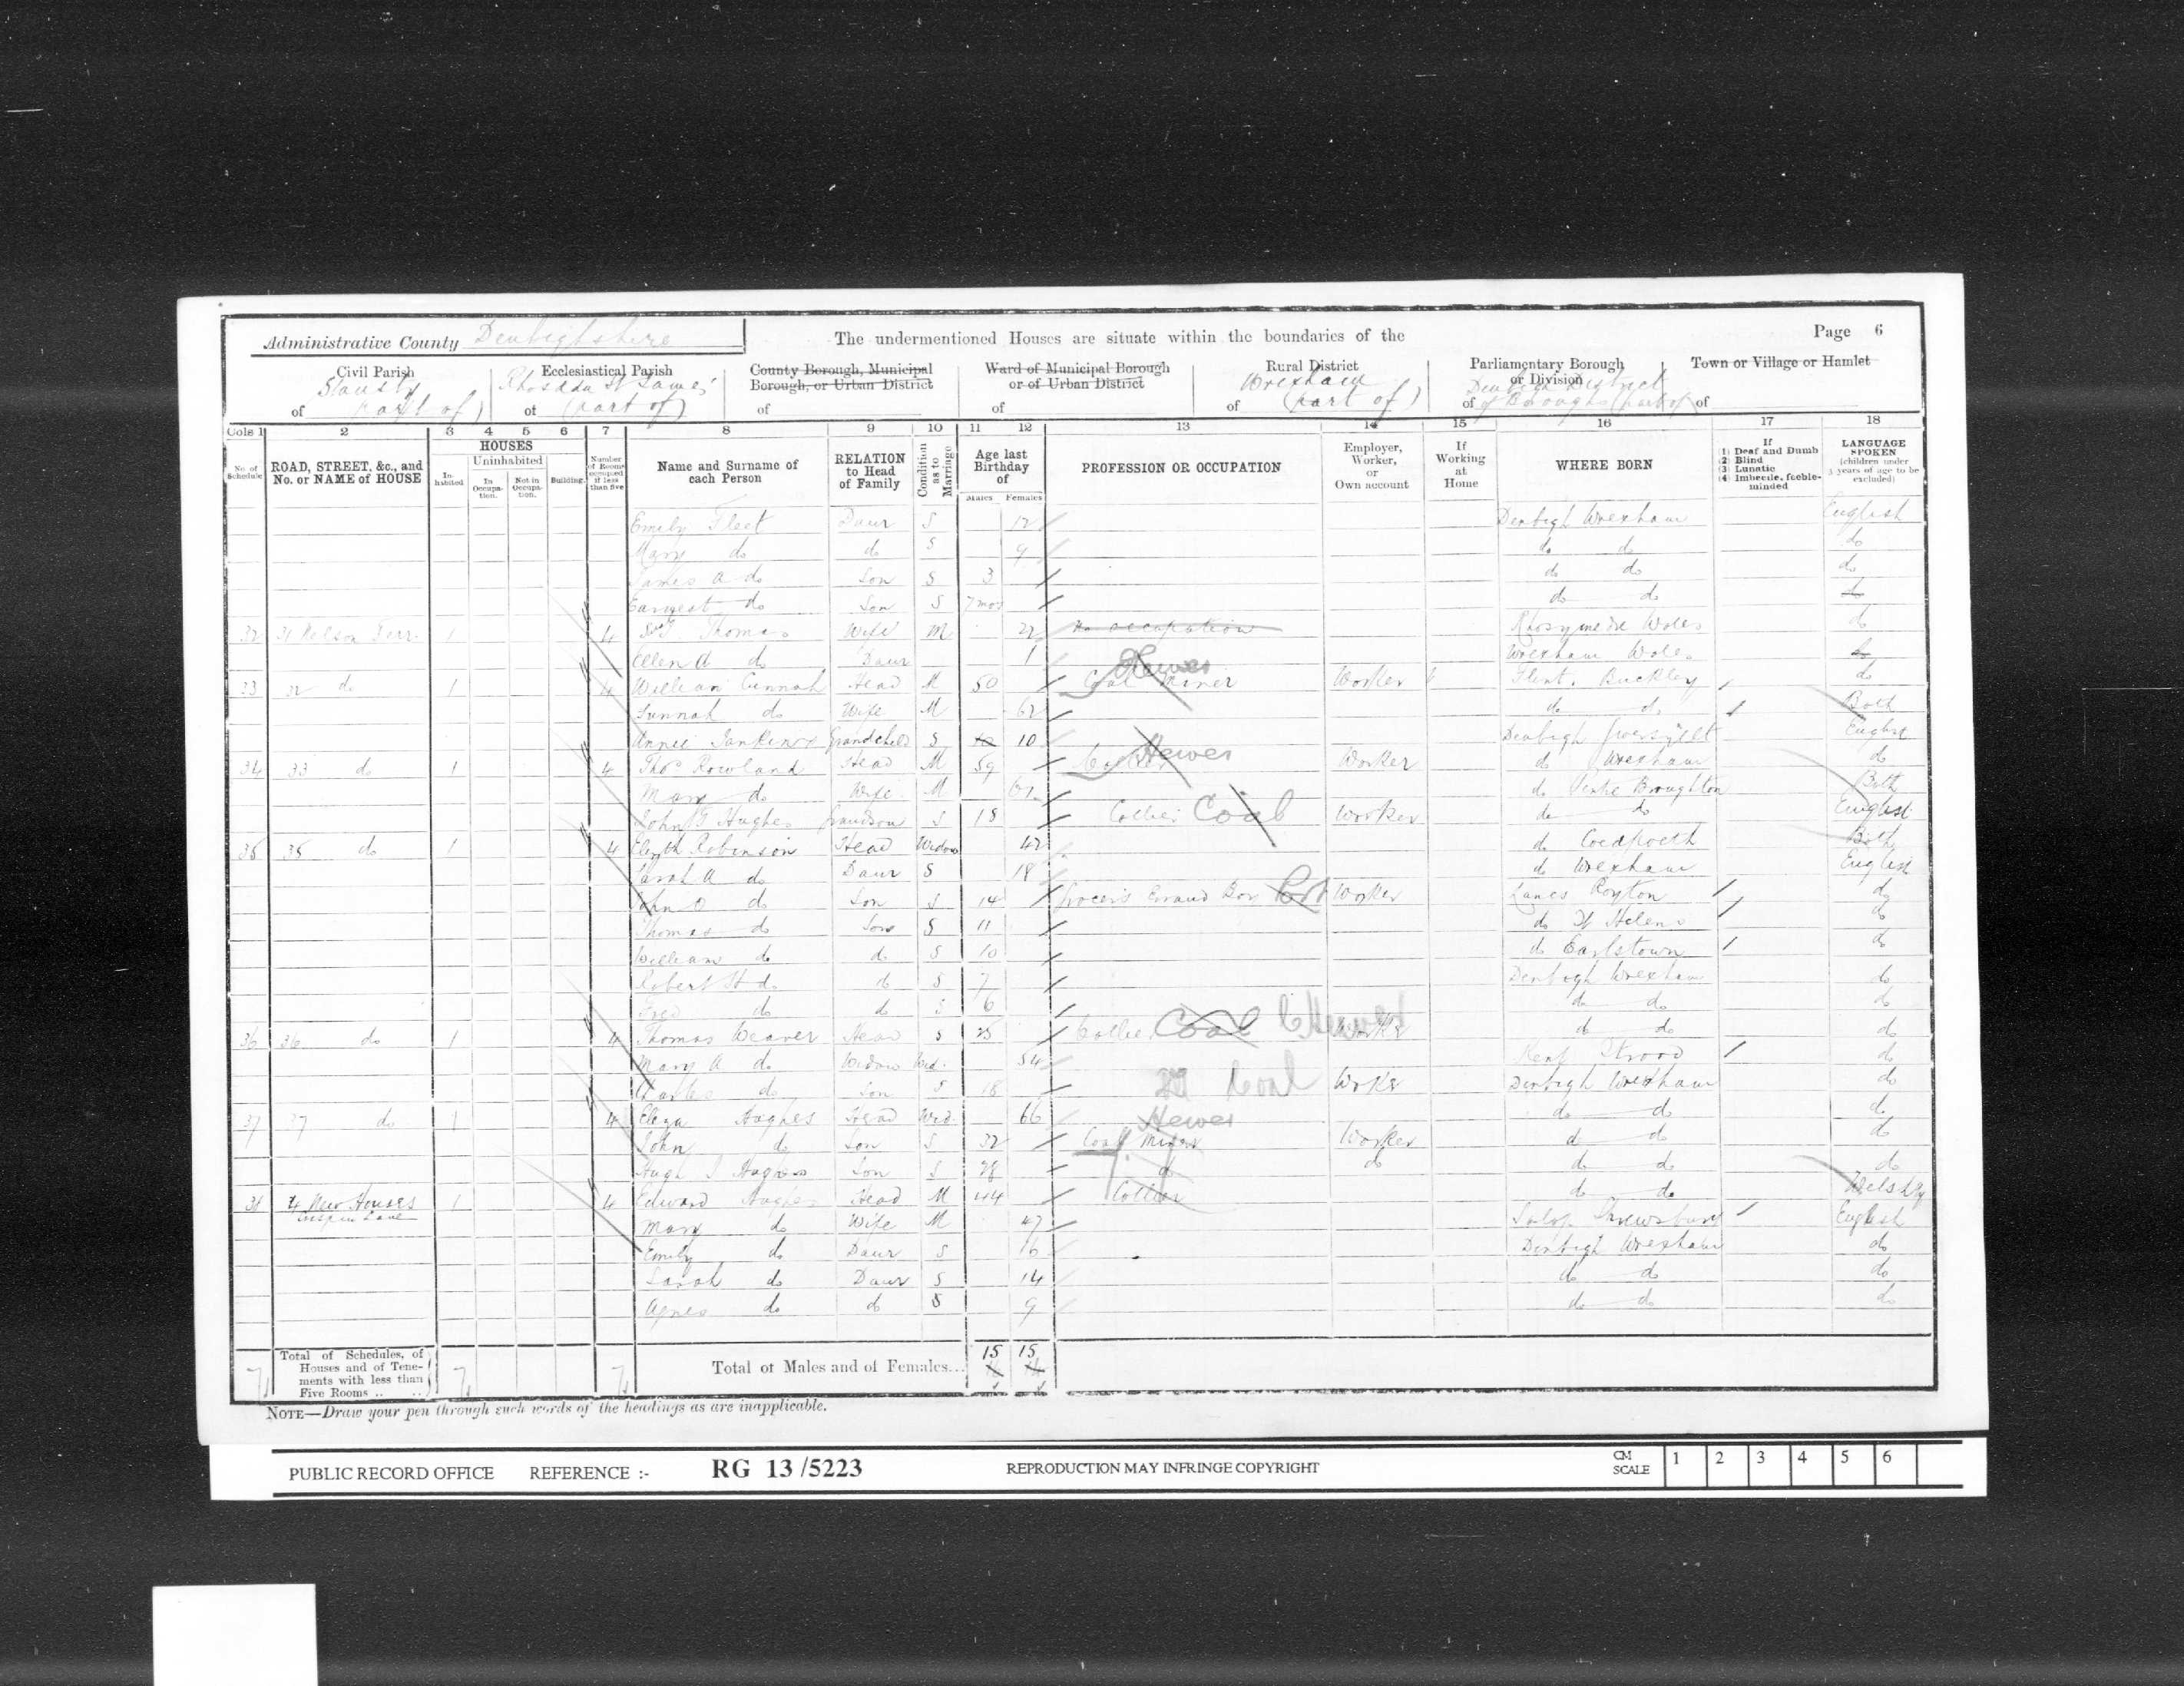 Administrative County Denbighshire
The undermentioned Houses are situate within the boundaries of the
Page 6
Civil Parish of (part of)
Ecclesiastical Parish of (part of)
County Borough, Municipal Borough, or Urban District of
Ward of Municipal Borough or of Urban District of
Rural District of Wrexham (part of)
Parliamentary Borough or Division of Denbigh District of Boroughs (part of)
Town or Village or Hamlet of
Cols 1 2 3 4 5 6 7 8 9 10 11 12 13 14 15 16 17 18
No. of Schedule
ROAD, STREET, &c., and No. or NAME of HOUSE
HOUSES
In-habited
Uninhabited
In Occupa-tion.
Not in Occupa-tion.
Building.
Number of Rooms occupied if less than five
Name and Surname of each Person
RELATION to Head of Family
Condition as to Marriage
Age last Birthday of
Males Females
PROFESSION OR OCCUPATION
Employer, Worker, or Own account
If Working at Home
WHERE BORN
If (1) Deaf and Dumb (2) Blind (3) Lunatic (4) Imbecile, feeble-minded
LANGUAGE SPOKEN (children under 3 years of age to be excluded)
Emily Fleet Daur S 12 Denbigh Wrexham English
Mary do do S 9 do do do
James A do Son S 3 do do do
do Son S 7 mos do do do
32 31 Nelson Terr. 1 4 Thomas Wife M No occupation do
Ellen A do Daur 1 Wrexham do
33 32 do 1 4 William Head M 50 Coal Miner Hewer Worker Flint. Buckley do
do Wife M 62 do do Both
Annie Grandchild S 10 10 Denbigh English
34 33 do 1 4 Thos Rowland Head M 59 Hewer Worker do Wrexham do
Mary do Wife M do Broughton Both
John Hughes Grandson S 18 Collier Coal Worker do do English
35 35 do 1 4 Robinson Head Widow 42 do Coedpoeth Both
Sarah A do Daur S 18 do Wrexham English
John O do Son S 14 Grocer's Errand Boy Worker Lancs Royton do
Thomas do Son S 11 do St Helens do
William do do S 10 do Earlstown do
Robert H do do S 7 Denbigh Wrexham do
Fred do do S 6 do do do
36 36 do 1 4 Thomas Weaver Head S 25 Collier Coal Hewer Worker do do do
Mary A do Widow Wid. 54 Kent Strood do
Charles do Son S 18 do Coal Worker Denbigh Wrexham do
37 37 do 1 4 Eliza Hughes Head Wid. 66 do do do
John do Son S 32 Coal Miner Hewer Worker do do do
Hugh Hughes Son S 28 do do do do do
38 4 New Houses 1 4 Edward Hughes Head M 44 Collier do do
Mary do Wife M 47 Salop Shrewsbury English
Emily do Daur S 16 Denbigh Wrexham do
Sarah do Daur S 14 do do do
Agnes do do S 9 do do do
7 Total of Schedules, of Houses and of Tene-ments with less than Five Rooms .. .. 7 7
Total of Males and of Females... 15 15
NOTE—Draw your pen through such words of the headings as are inapplicable.
PUBLIC RECORD OFFICE REFERENCE :- RG 13 /5223 REPRODUCTION MAY INFRINGE COPYRIGHT CM SCALE 1 2 3 4 5 6